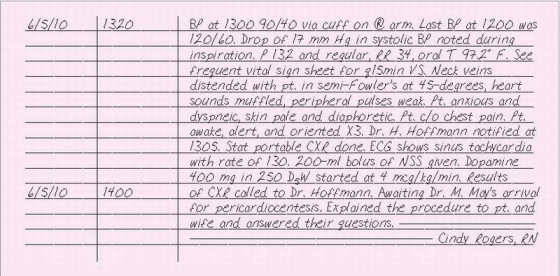 6/5/10 1320 BP at 1300 90/40 via cuff on Ⓡ arm. Last BP at 1200 was
120/60. Drop of 17 mm Hg in systolic BP noted during
inspiration. P 132 and regular, RR 34, oral T 97.2° F. See
frequent vital sign sheet for q15min VS. Neck veins
distended with pt. in semi-Fowler's at 45-degrees, heart
sounds muffled, peripheral pulses weak. Pt. anxious and
dyspneic, skin pale and diaphoretic. Pt. c/o chest pain. Pt.
awake, alert, and oriented X3. Dr. H. Hoffmann notified at
1305. Stat portable CXR done. ECG shows sinus tachycardia
with rate of 130. 200-ml bolus of NSS given. Dopamine
400 mg in 250 D5W started at 4 mcg/kg/min. Results
6/5/10 1400 of CXR called to Dr. Hoffmann. Awaiting Dr. M. May's arrival
for pericardiocentesis. Explained the procedure to pt. and
wife and answered their questions.
Cindy Rogers, RN